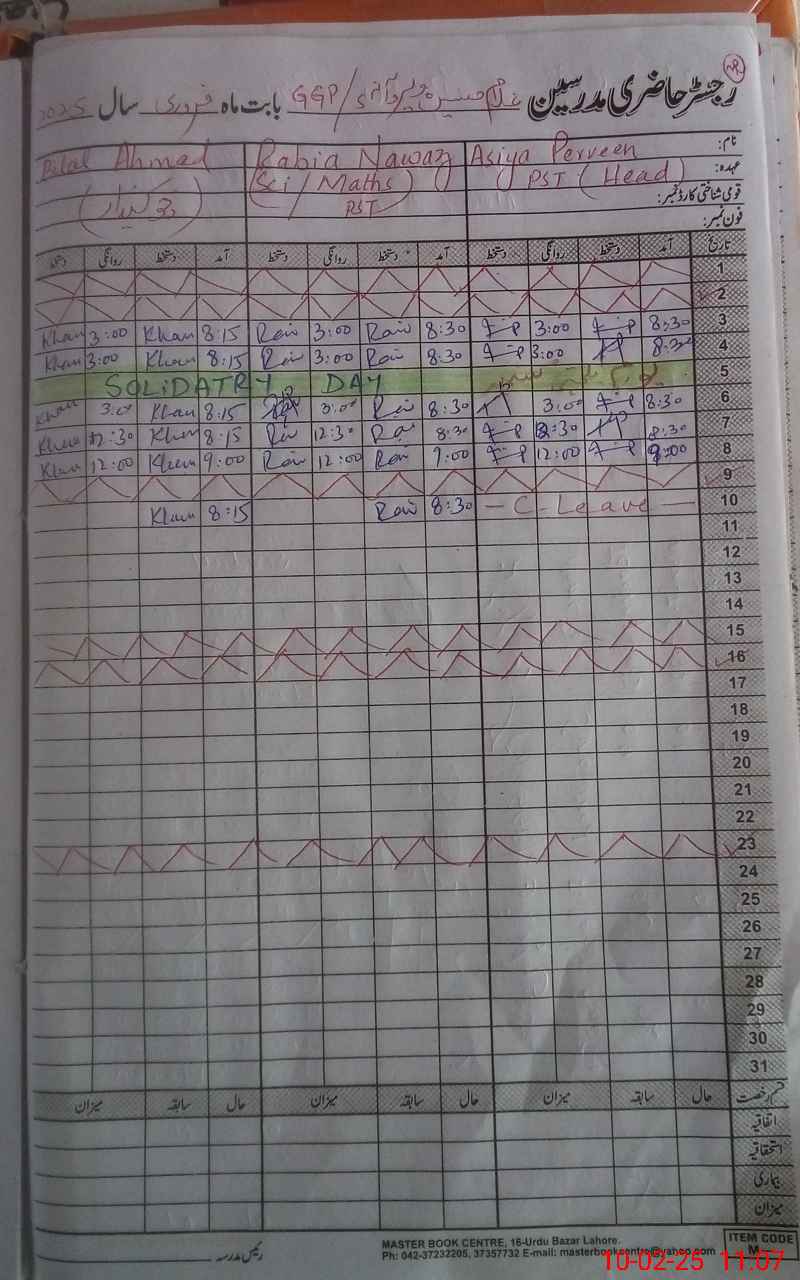 رجسٹر حاضری مدرسین GGP/ بابت ماہ فروری سال 2025
نام: Asiya Perveen Rabia Nawaz Bilal Ahmad
عہدہ: PST (Head) (Sci/Maths) PST
قومی شناختی کارڈ نمبر:
فون نمبر:
تاریخ آمد دستخط روانگی دستخط آمد دستخط روانگی دستخط آمد دستخط روانگی دستخط
1
2
Khan 3:00 Khan 8:15 Rai 3:00 Rai 8:30 3:00 8:30 3
Khan 3:00 Khan 8:15 Rai 3:00 Rai 8:30 3:00 8:30 4
SOLIDATRY DAY 5
Khan 3:00 Khan 8:15 3:00 Rai 8:30 3:00 8:30 6
Khan 12:30 Khan 8:15 Rai 12:30 Rai 8:30 12:30 8:30 7
Khan 12:00 Khan 9:00 Rai 12:00 Rai 9:00 12:00 9:00 8
9
Khan 8:15 Rai 8:30 - C-Leave - 10
11
12
13
14
15
16
17
18
19
20
21
22
23
24
25
26
27
28
29
30
31
قسم رخصت حال سابقہ میزان حال سابقہ میزان حال سابقہ میزان
اتفاقیہ
استحقاقیہ
بیماری
میزان
رئیس مدرسہ
MASTER BOOK CENTRE, 16-Urdu Bazar Lahore.
Ph: 042-37232205, 37357732 E-mail: masterbookcentre@yahoo.com
ITEM CODE
10-02-25 11:07